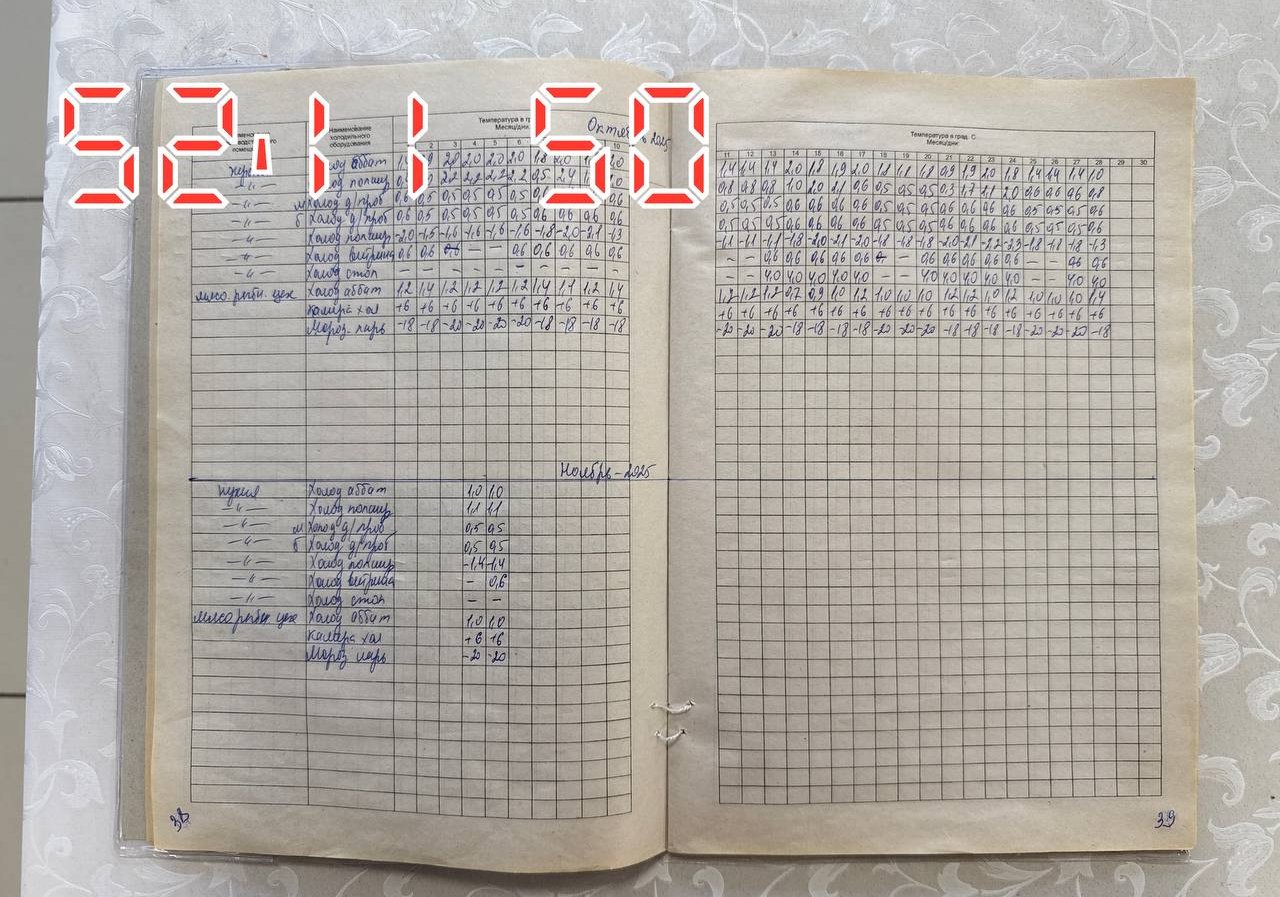 52.11 50
Наименование холодильного оборудования
Температура в гр
Месяц/дни
Октяб в 2025
2 3 4 5 6 10
кухня Холод аббат 2,0 2,0 2,0 1,8 2,0
—"— Холод полаир 2,2 2,2 2,2 2,2 0,5 2,4
—"— м Холод д/проб 0,5 0,5 0,5 0,5 0,5 0,6
—"— б Холод д/проб 0,6 0,5 0,5 0,5 0,5 0,5 0,6 0,6 0,6 0,6
—"— Холод полаир -2,0 -1,5 -1,6 -1,6 -1,6 -1,6 -1,8 -2,0 -2,1 -1,3
—"— Холод витрина 0,6 0,6 — — 0,6 0,6 0,6 0,6 0,6
—"— Холод стол — — — — — — — — — —
мясо.рыбн. цех Холод аббат 1,2 1,4 1,2 1,2 1,2 1,2 1,4 1,1 1,2 1,4
Камера хол +6 +6 +6 +6 +6 +6 +6 +6 +6 +6
Мороз ларь -18 -18 -20 -20 -20 -20 -18 -18 -18 -18
Ноябрь-2025
кухня Холод аббат 1,0 1,0
—"— Холод полаир 1,1 1,1
—"— м Холод д/проб 0,5 0,5
—"— б Холод д/проб 0,5 0,5
—"— Холод полаир -1,4 -1,4
—"— Холод витрина — 0,6
—"— Холод стол — —
мясо.рыбн. цех Холод аббат 1,0 1,0
Камера хол +6 +6
Мороз ларь -20 -20
38
Температура в град. С
Месяц/дни
11 12 13 14 15 16 17 18 19 20 21 22 23 24 25 26 27 28 29 30
1,4 1,4 1,4 2,0 1,8 1,9 2,0 1,8 1,8 1,8 1,8 0,9 1,9 2,0 1,8 1,4 1,4 1,4 1,0
0,8 0,8 0,8 1,0 2,0 2,1 0,6 0,5 0,5 0,5 0,3 1,7 2,1 2,0 0,6 0,6 0,6 0,8
0,5 0,5 0,5 0,6 0,6 0,6 0,6 0,5 0,5 0,5 0,6 0,6 0,6 0,6 0,5 0,5 0,5 0,6
0,5 0,5 0,5 0,6 0,6 0,6 0,6 0,5 0,5 0,5 0,6 0,6 0,6 0,6 0,6 0,5 0,5 0,6
-1,1 -1,1 -1,1 -1,8 -2,0 -2,1 -2,0 -1,8 -1,8 -1,8 -2,0 -2,1 -2,2 -2,3 -1,8 -1,8 -1,8 -1,3
— — 0,6 0,6 0,6 0,6 0,6 — 0,6 0,6 0,6 0,6 0,6 — — 0,6 0,6
— — 4,0 4,0 4,0 4,0 4,0 — — 4,0 4,0 4,0 4,0 4,0 — — 4,0 4,0
1,2 1,2 1,2 0,7 0,9 1,0 1,2 1,0 1,0 1,0 1,2 1,2 1,0 1,2 1,0 1,0 1,0 1,4
+6 +6 +6 +6 +6 +6 +6 +6 +6 +6 +6 +6 +6 +6 +6 +6 +6 +6
-20 -20 -20 -18 -18 -18 -18 -20 -20 -20 -18 -18 -18 -18 -20 -20 -20 -18
39